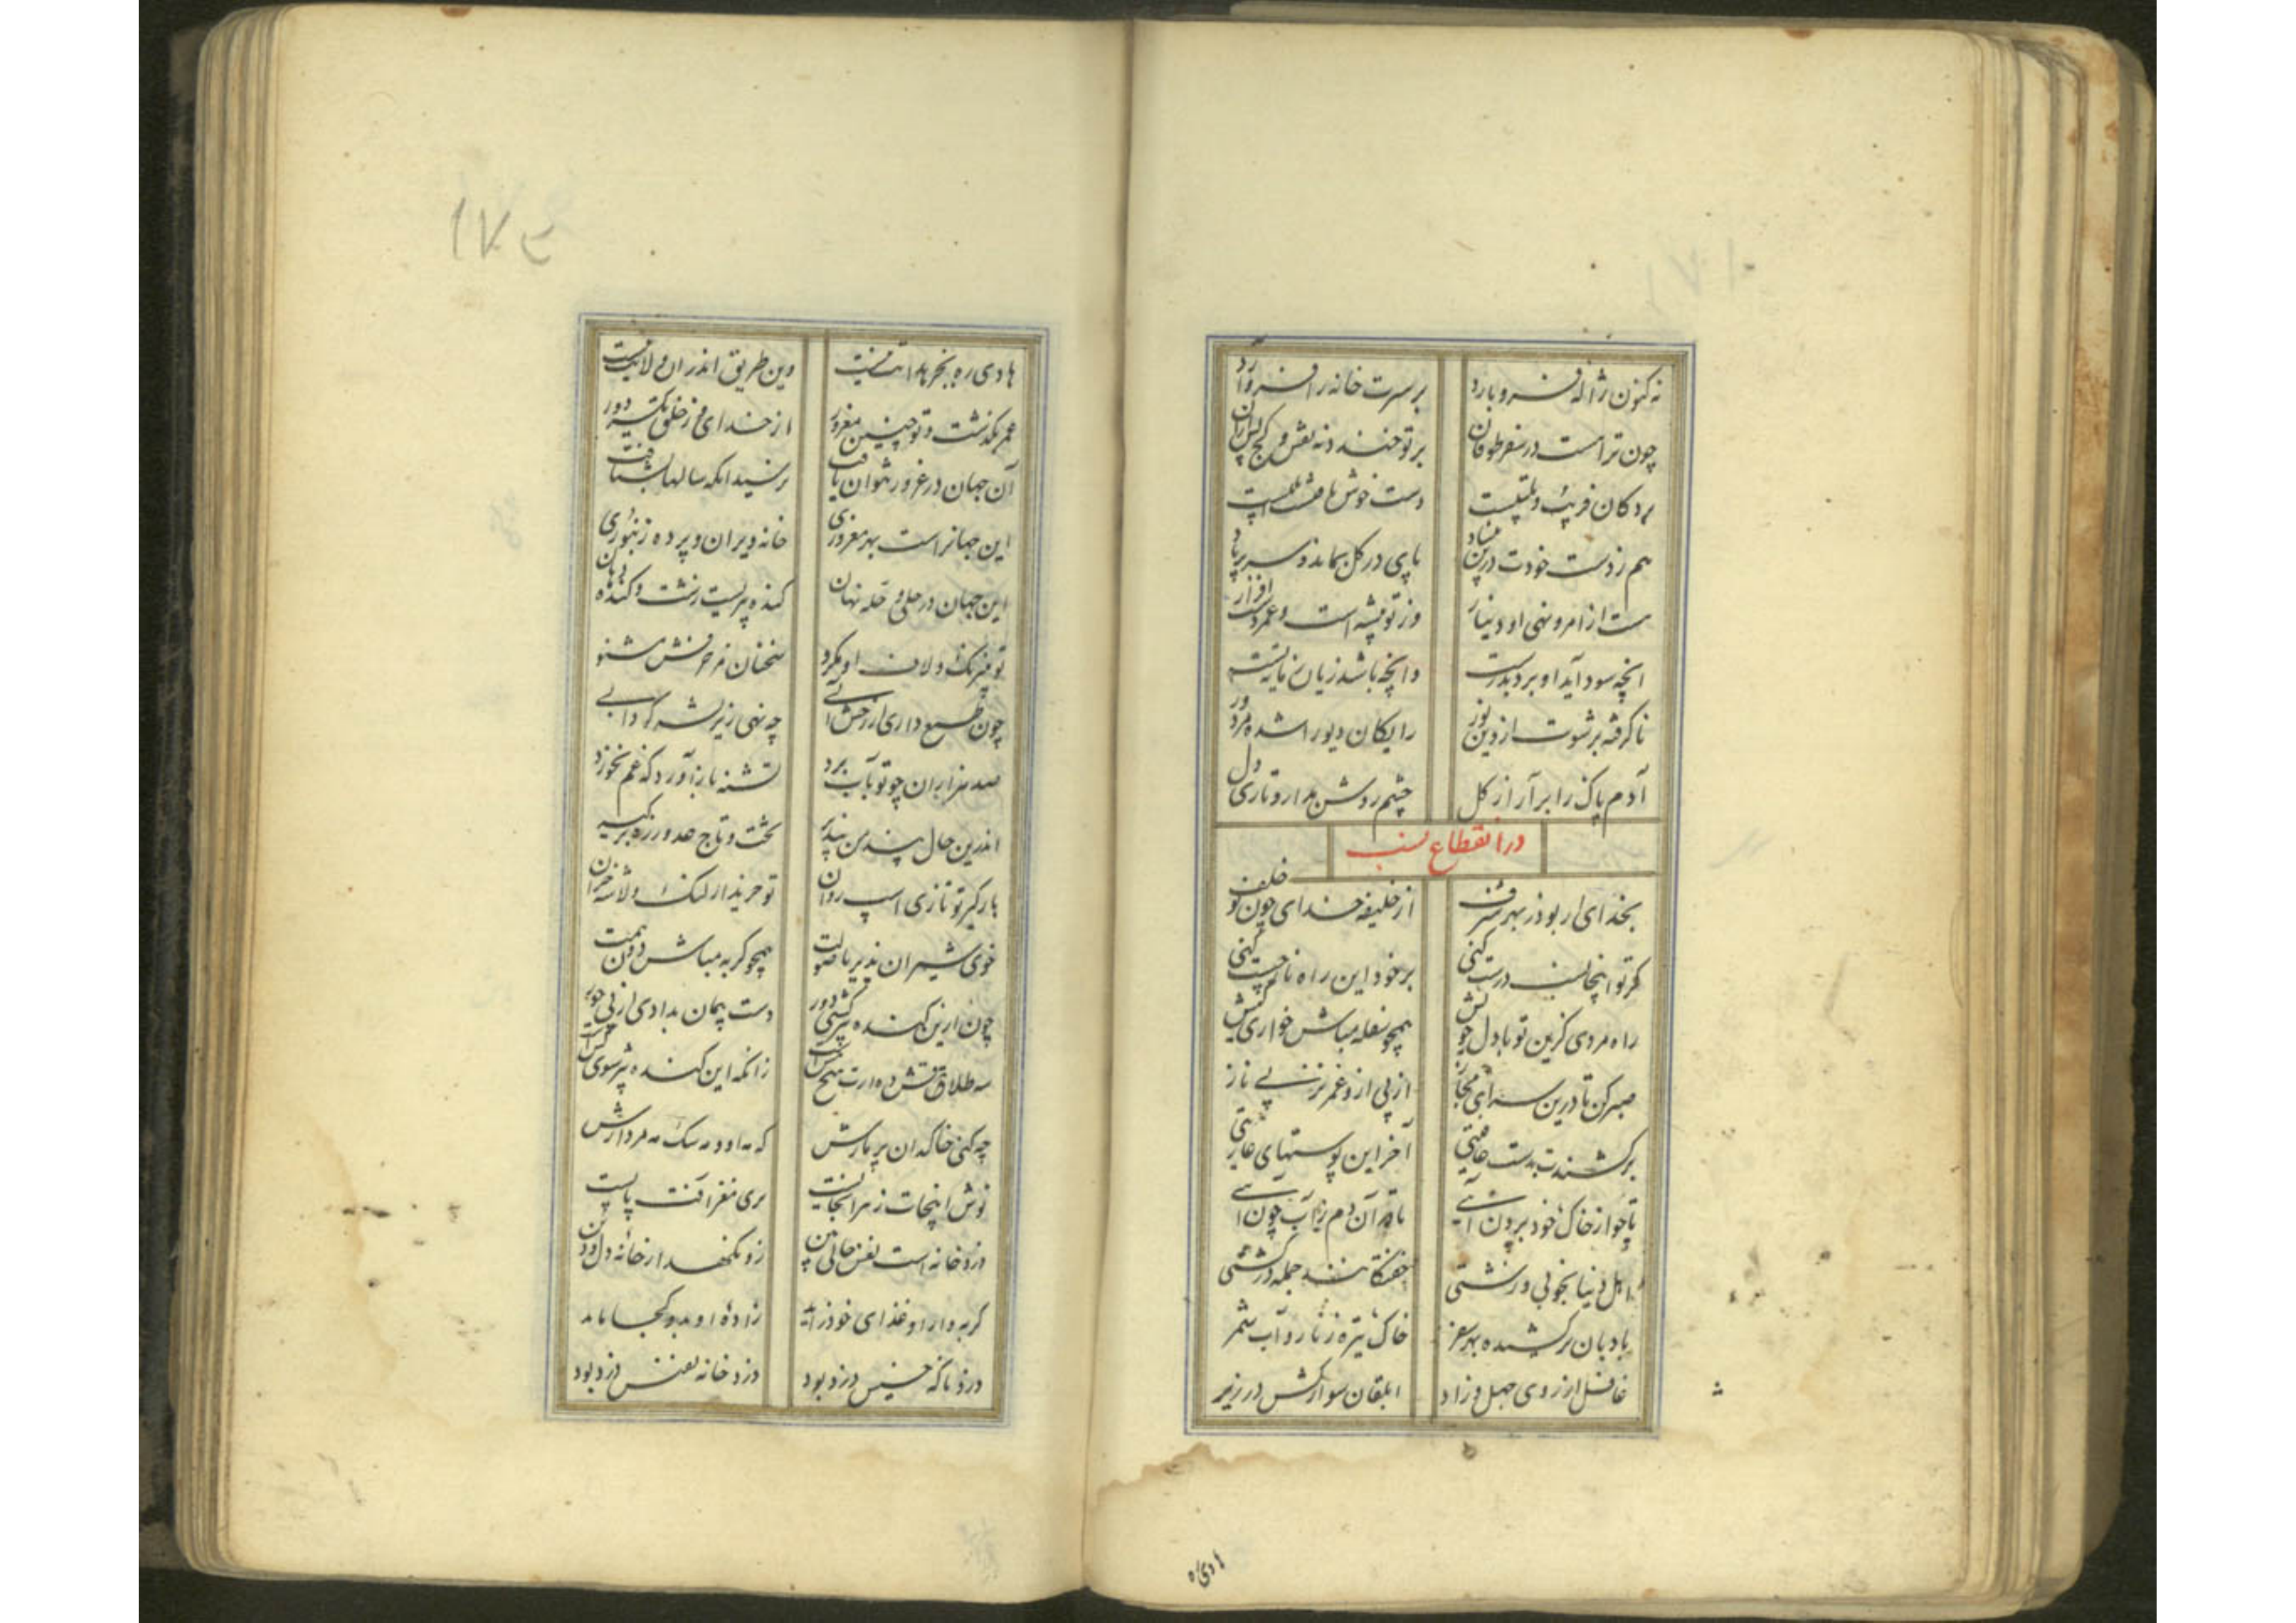 نه کنون ژاله فرو بارد بر سرت خانه را فرو آرد
چون ترا هست در سفر طوفان بر تو خندد نه نقش و
بر دکان فریب و تلبیست دست خوش
هم ز دست خودت درین بنیاد پای در گل بماند و سر پر باد
ست از امر و نهی او دینار وز تو پیشه است و عمر دست افزار
انچه سود آید او برد بدرست وانچه باشد زیان ز مایه تست
نا گرفته بر شوت از دین نور رایکان دیو را شده مزدور
آدم پاک را بر آر از گل چشم روشن مدار و تاری دل
در انقطاع نسب
بخدای ار بود ز بهر شرف از خلیفه خدای چون تو خلف
گر تو اینجا نسب درست کنی بر خود این راه نا چست کنی
راه مردی گزین تو با دل خوش همچو سفله مباش خواری کش
صبر کن تا درین سرای مجاز از پی از و عمر بی ناز
بر کشندت بدست عافیتی آخر این پوستهای عاریتی
تا چو از خاک خود برون آیی با قر آن دم ز آب چون آیی
اهل دنیا بخوبی و زشتی خفتگانند جمله در کشتی
بادبان بر کشیده بهر سفر خاک تیره ز نار و آب شمر
غافل از روی جهل و زاد ابلقان سوار کش در زیر
هادی ره
هادی ره بجز هدایت نیست وین طریق اندر ان ولایت نیست
عمر بگذشت و تو چنین مغرور از خدای و ز خلق یکسر دور
آن جهان در غرور نتوان یافت نرسید انکه سالها بشتافت
این جهانراست بهر مغروری خانه ویران و پرده زنبوری
این جهان در حلی و حله نهان گنده پیریست زشت و گنده دهان
تو بنیرنگ و لاف او مگرو سخنان مزخرفش مشنو
چون طمع داری از خسش آبی چه نهی زیر گردابی
صد هزاران چو تو بآب برد تشنه باز آورد که غم نخورد
اندرین حال پند من بپذیر تخت و تاج
بارگیر تو تازی اسپ روان تو خریدار لنگ و لاشه خران
خوی شیران پذیر با صولت همچو گربه مباش دون همت
چون ازین گنده پیر گشتی دور دست پیمان بدادی از پی حور
سه طلاقش ده ارت هیچ هش است زانکه این گنده پیر شوی کش است
چه کنی خاکدان پر مارش که نه او و نه سگ نه مردارش
نوش اینجات زهر آنجاییست
دزد خانه است نفس حالی بین زو نگهدار خانه دل و دین
گر به دار او غذای خود زاید زاده او بدو کجا پاید
دزد ناگه خسیس دزد بود دزد خانه نفیس دزد بود
۱۷۲